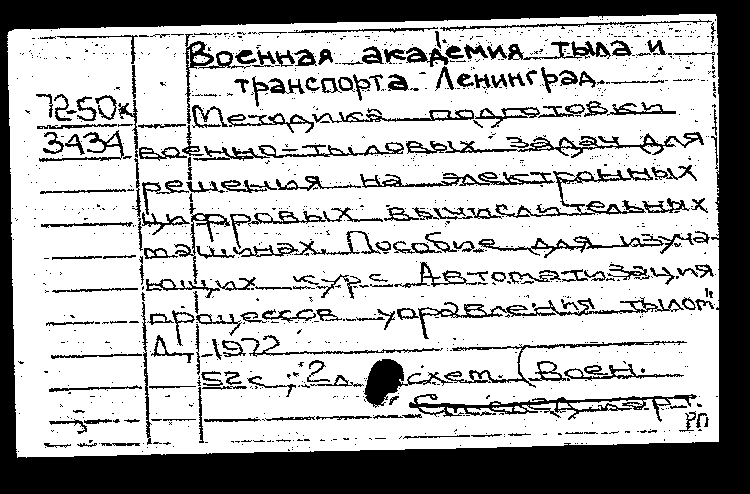 Военная академия тыла и
транспорта. Ленинград.
72-50к
Методика подготовки
3434
военно-тыловых задач для
решения на электронных
цифровых вычислительных
машинах. Пособие для изуча-
ющих курс „Автоматизация
процессов управления тылом"
Л., 1972
52с.; 2л. схем. (Воен.
См. след. карт.
РП